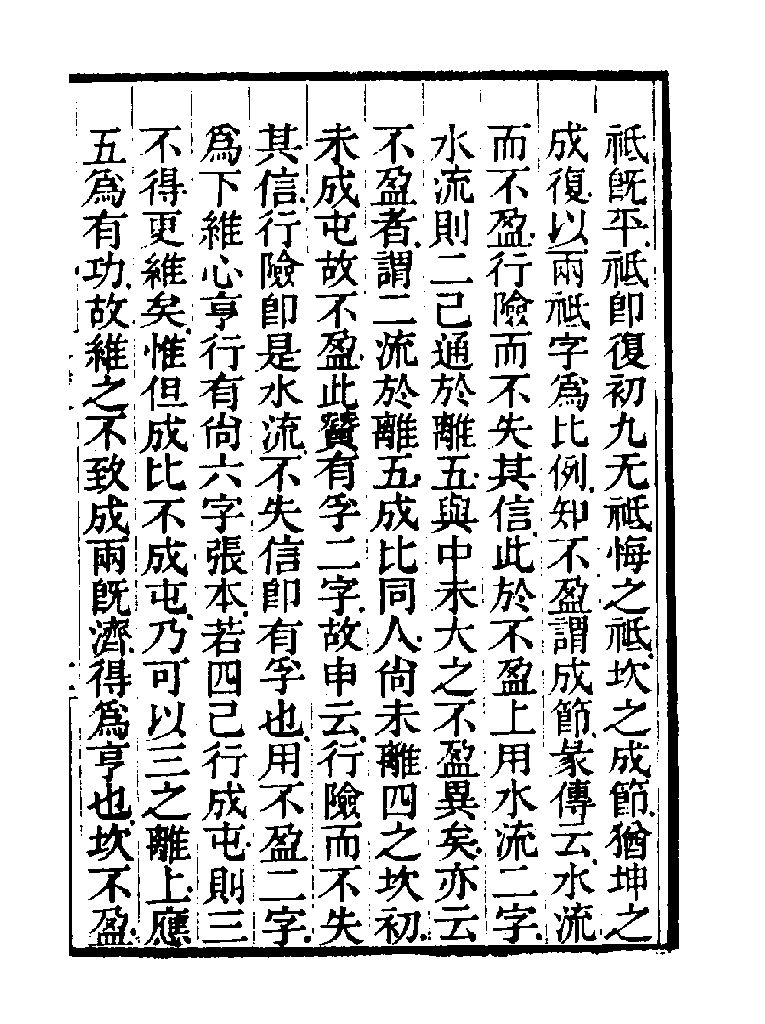 祗旣平祗卽復初九无祗悔之祗坎之成節猶坤之
成復以兩祗字爲比例知不盈謂成節彖傳云水流
而不盈行險而不失其信此於不盈上用水流二字
水流則二已通於離五與中未大之不盈異矣亦云
不盈者謂二流於離五成比同人尙未離四之坎初
未成屯故不盈此贊有孚二字故申云行險而不失
其信行險卽是水流不失信卽有孚也用不盈二字
爲下維心亨行有尙六字張本若四已行成屯則三
不得更維矣惟但成比不成屯乃可以三之離上應
五爲有功故維之不致成兩旣濟得爲亨也坎不盈